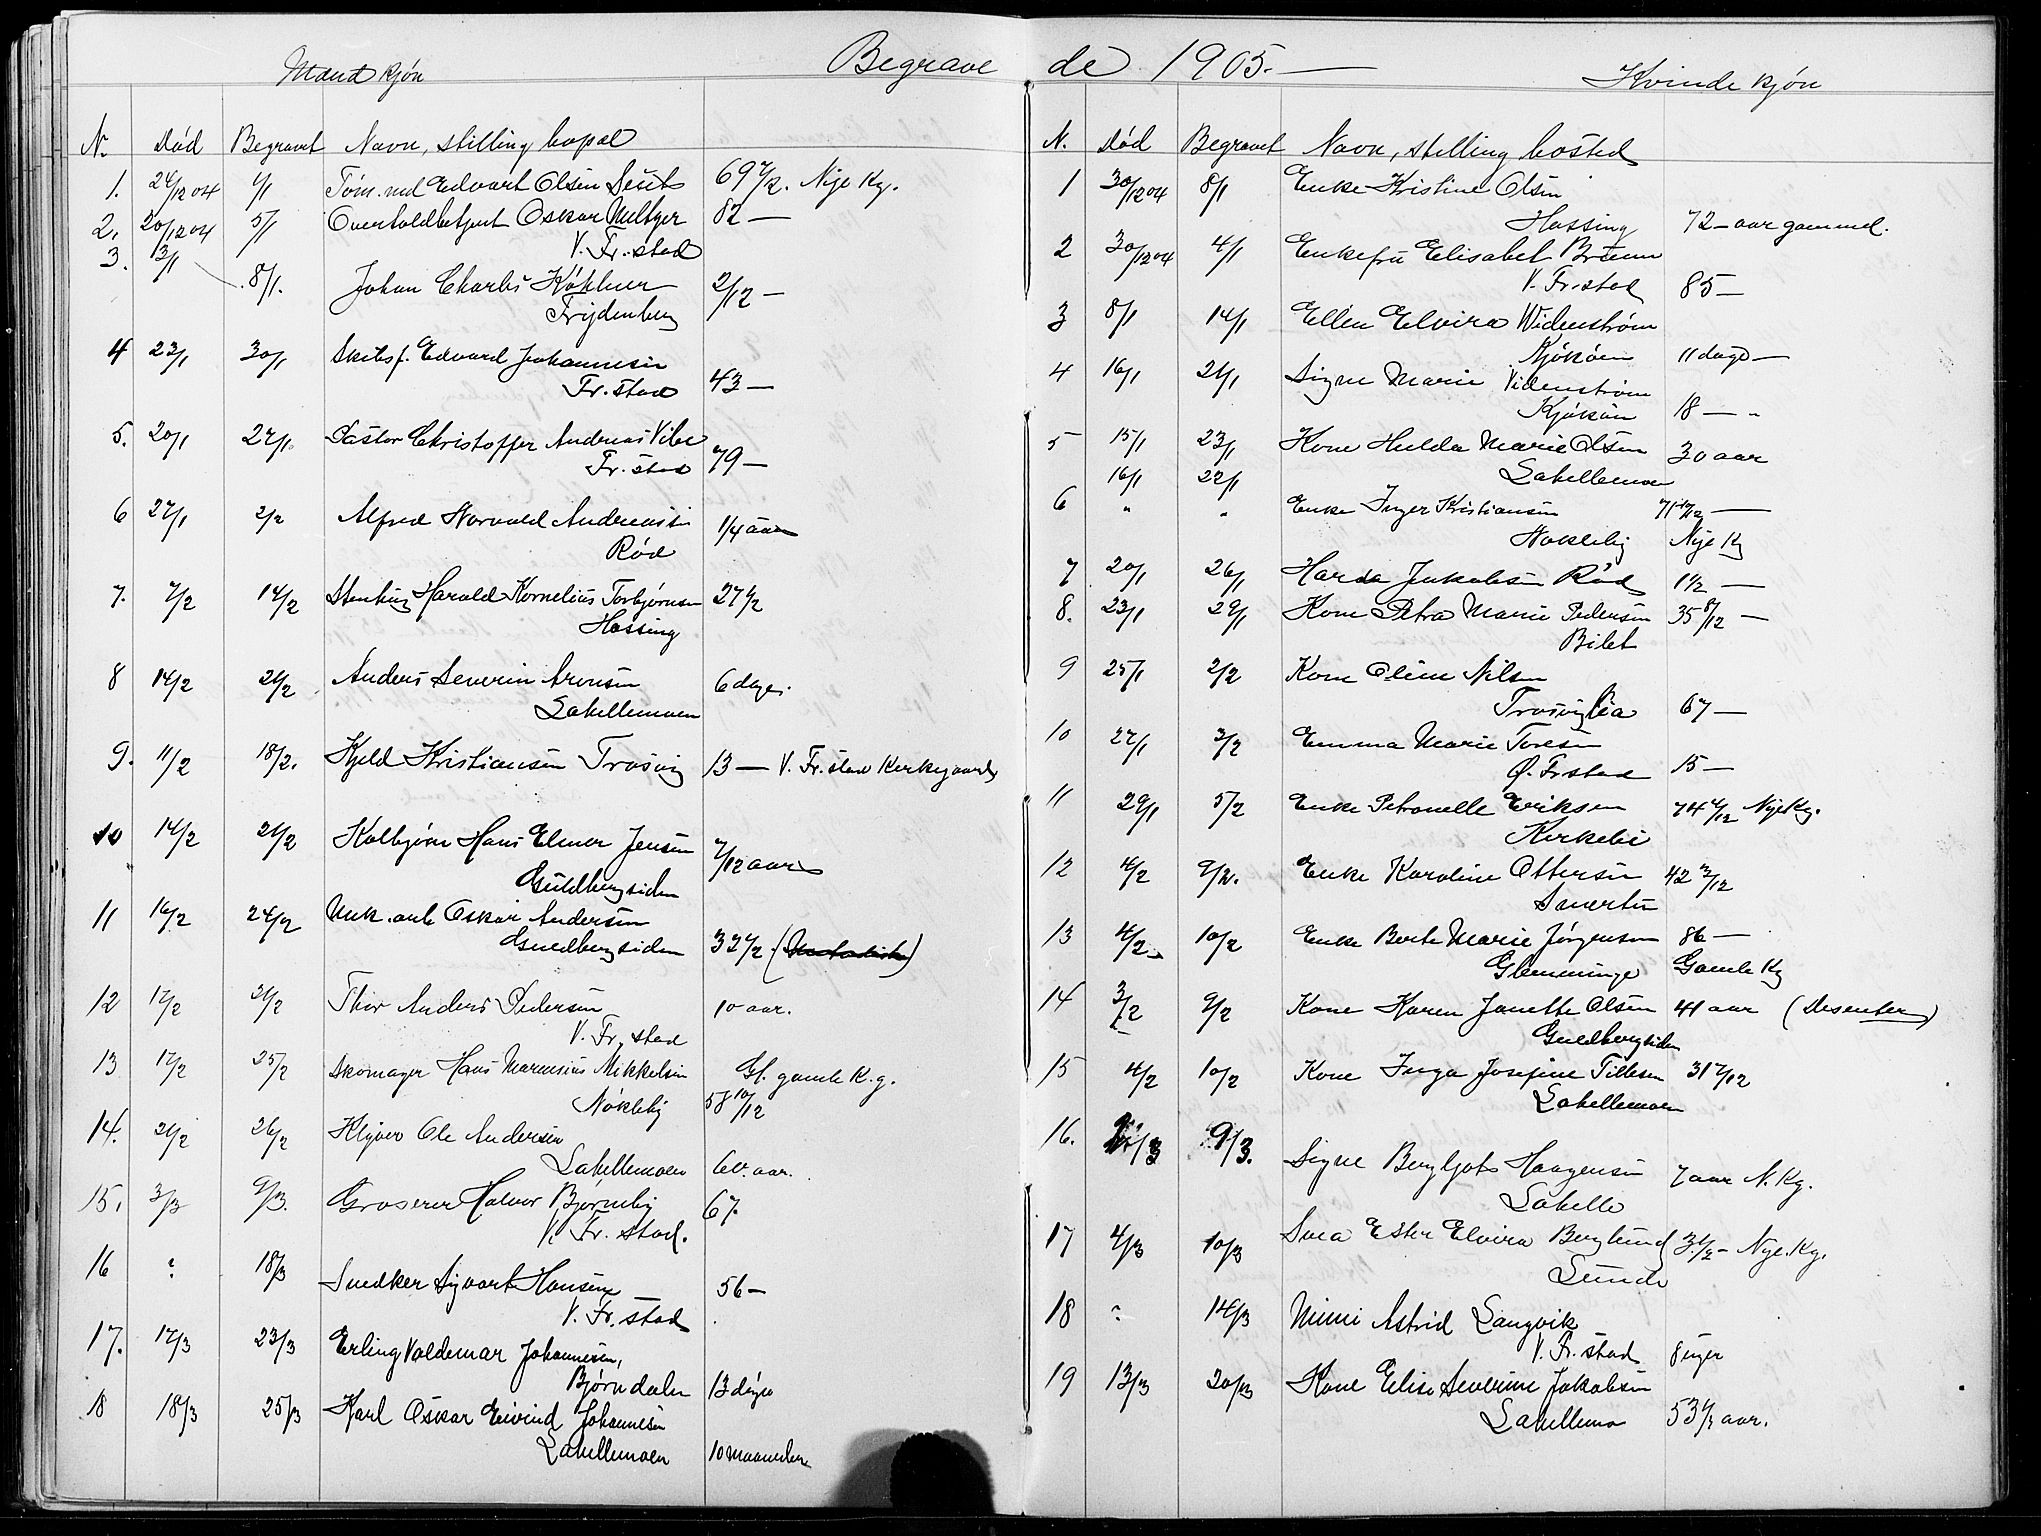 Begravede 1905.
Mandkjøn
N. Død Begravet Navn, stilling, bopæl
1. 24/12 04 1/1 Tøm.md Edvart Olsen 69 1/2. Nye Kg.
2. 20/12 04 5/1 Overtoldbetjent Oskar 82 —
V. Fr.stad
3. 3/1 8/1. Johan Charles 2/12 —
Frydenberg
4 23/1 30/1 Skibsf. Edvard Johannesen
Fr.stad 43 —
5. 20/1 27/1 Pastor Christopher Andreas Vibe
Fr.stad 79 —
6 27/1 2/2 Alfred Harvald Andreassen 1/4 aar
Rød
7. 7/2 14/2 Stenhug Harald Kornelius Torbjørnsen 27 1/2
Hassing
8 14/2 21/2 Anders Severin Aronsen 6 dage.
Labellemoen
9. 11/2 18/2. Kjeld Kristiansen Trosvig 13 — V. Fr.stad Kirkegaard
10 14/2 21/2 Kolbjørn Hans Elmer Jensen 7/12 aar
Guldbergsiden
11 16/2 24/2 Mek. arb Oskar Andersen
Guldbergsiden 32 1/2
12 17/2 21/2 Thor Anders Pedersen 10 aar.
V. Fr.stad
13 17/2 25/2 Skomager Hans Marensius Mikkelsen Gl. gamle K.g.
Nøkleby 58 10/12
14. 21/2 26/2 Kløver Ole Andersen
Labellemoen 60 aar.
15. 3/3 9/3. Groserer Halvor Bjørneby 67.
V. Fr.stad.
16 ? 18/3 Snedker Sigvart Hansen 56 —
V. Fr.stad
17. 17/3 23/3 Erling Valdemar Johannesen,
Bjørndalen 13 dage
18 18/3 25/3 Karl Oskar Eivind Johannesen
Labellemoen 10 maaneder
Kvindekjøn
N. Død Begravet Navn, stilling bosted
1 30/12 04 8/1 Enke Kristine Olsen
Hassing 72 — aar gammel.
2 30/12 04 4/1 Enkefru Elisabet
V. Fr.stad 85 —
3 8/1 14/1 Ellen Elvira Widenstrøm
Kjøkøen 11 dage —
4 16/1 21/1 Signe Marie Videnstrøm
Kjøkøen 18 — "
5 15/1 23/1 Kone Hulda Marie Olsen 30 aar
Labellemoen
16/1 22/1
6 " " Enke Inger Kristiansen 71 —
Nøkleby Nye Kg
7 20/1 26/1 Harda Jakobsen Rød 1 1/2 —
8. 23/1 29/1 Kone Petra Marie Pedersen 35 8/12 —
Bilet
9 25/1 2/2 Kone Oline Nilsen
Trosviglia 67 —
10 27/1 3/2 Emma Marie Toresen
Ø. Frstad 15 —
11 29/1 5/2 Enke Petronelle Eriksen Nye Kg.
Kirkebø
12 4/2 9/2. Enke Karoline Ottersen 42
Smertu
13 4/2 10/2 Enke Berte Marie Jørgensen 86 —
Glemminge Gamle Kg
14 3/2 9/2 Kone Karen Janette Olsen 41 aar (Desenter)
Guldbergsiden
15 4/2 10/2 Kone Inga Josefine Tillesen 31 7/12
Labellemoen
16. 9/3. Signe Bergljots Haagensen 7 aar N. Kg.
Labelle
17 4/3 10/3 Svea Ester Elvira Berglund 3 1/2 — Nye. Kg.
Lunde
18 ? 14/3 Mimi Astrid Langvik
V. Fr.stad 8 uger
19 13/3 20/3 Kone Elise Severine Jakobsen
Labellemo 53 aar.